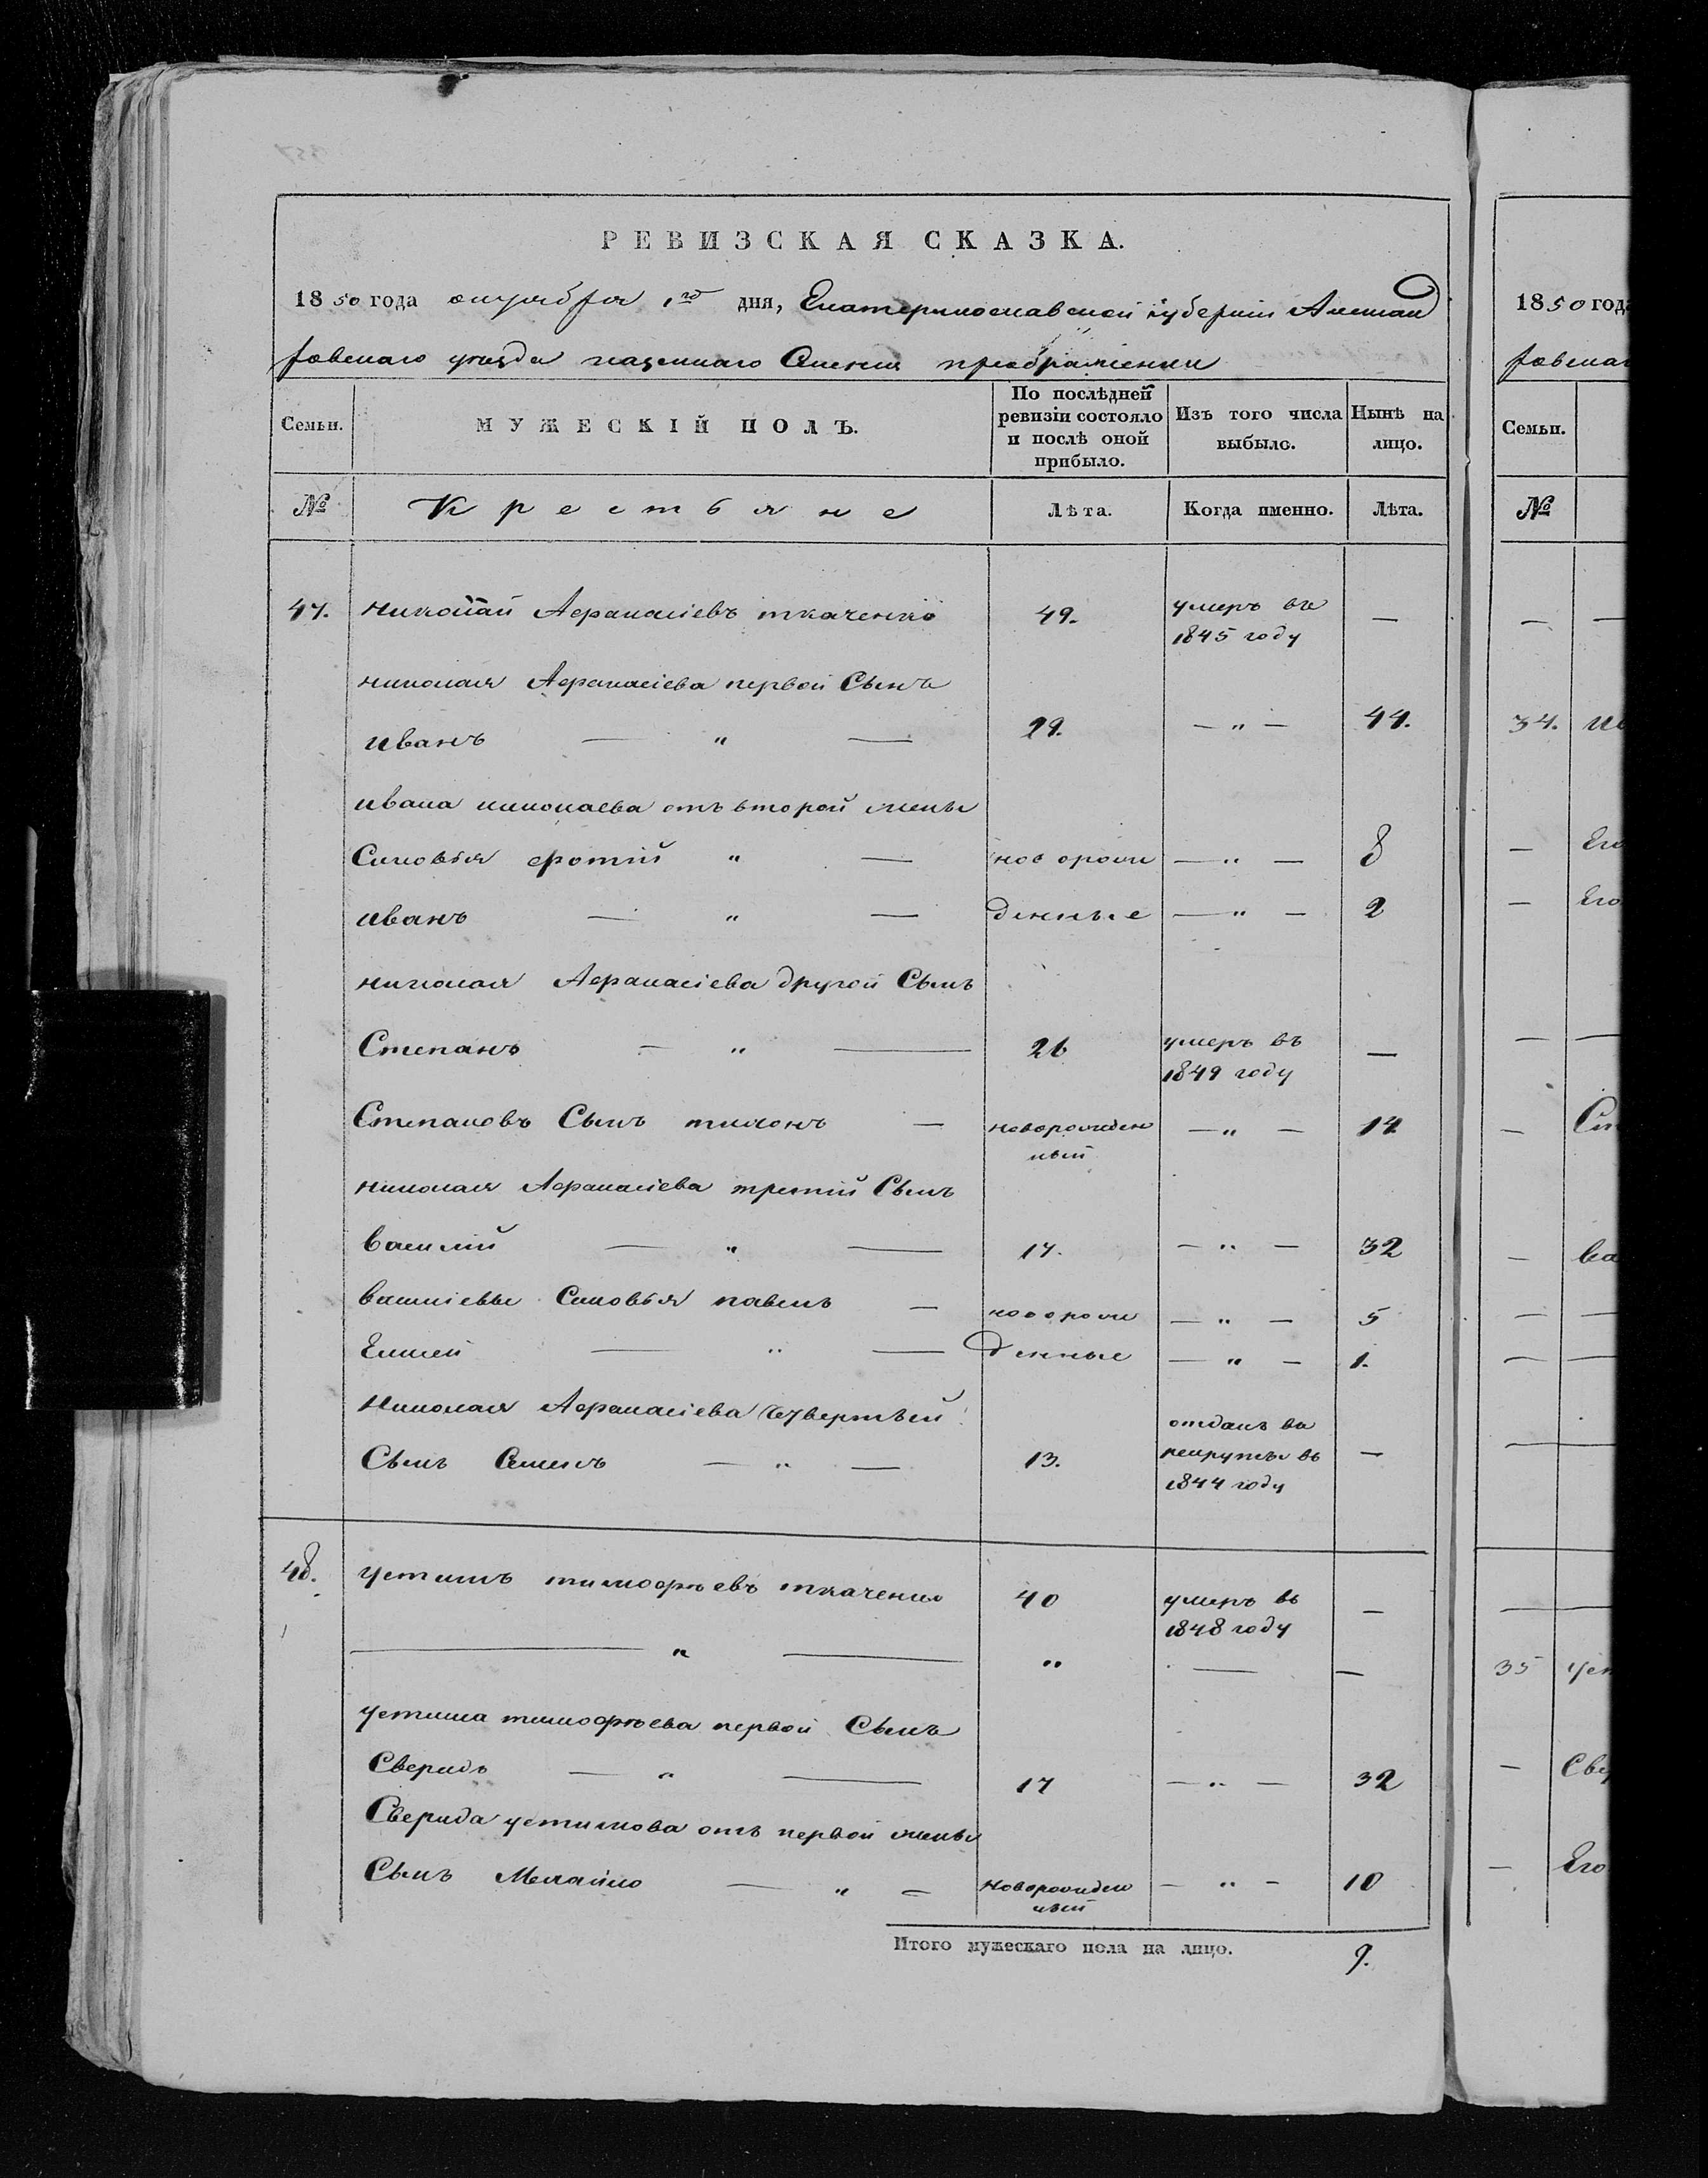 РЕВИЗСКАЯ СКАЗКА.
1850 года октября 1го дня, Екатеринославской губернiи Александ
ровскаго уѣзда казеннаго Селенiя преображенки
Семьи.
МУЖЕСКІЙ ПОЛЪ.
По послѣдней ревизіи состояло и послѣ оной прибыло.
Изъ того числа выбыло.
Нынѣ на лицо.
№
Крестьяне
Лѣта.
Когда именно.
Лѣта.
47. николай Афанасiевъ ткаченко 49. умеръ въ 1845 году —
николая Афанасiева первой Сынъ
иванъ — " — 29. — " — 44.
ивана николаева отъ второй жены
Сыновья фотiй " — новорож — " — 8
иванъ — " — денные — " — 2
николая Афанасiева другой Сынъ
Степанъ — " — 26 умеръ въ 1849 году —
Степановъ Сынъ тихонъ — новорожден ный — " — 14
николая Афанасiева третiй Сынъ
василiй — " — 17. — " — 32
василiевы Сыновья павелъ — новорож — " — 5
Елисей — " — денные — " — 1.
Николая Афанасiева Четвертый
Сынъ Семенъ — " — 13. отданъ въ рекруты въ 1844 году —
48. устимъ тимофѣевъ ткаченко 40 умеръ въ 1848 году —
— " — " — —
устима тимофѣева первой Сынъ
Сверидъ — " — 17 — " — 32
Сверида устимова отъ первой жены
Сынъ Михайло — " — Новорожден ный — " — 10
Итого мужескаго пола на лицо. 9.
1850 год
ровскаг
Семьи.
№
34. ив
Его
Его
Ст
Ва
35 Уст
Све
Его